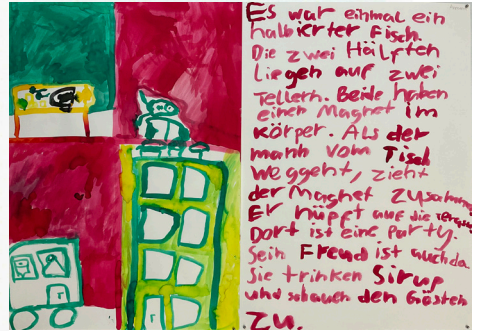 Es war einmal ein
halbierter Fisch.
Die zwei Hälften
liegen auf zwei
Tellern. Beide haben
einen Magnet im
Körper. Als der
mann vom Tisch
weggeht, zieht
der Magnet zusammen
Er hüpft auf die
Dort ist eine Party.
Sein Freud ist auch da
Sie trinken Sirup
und schauen den Gästen
zu.